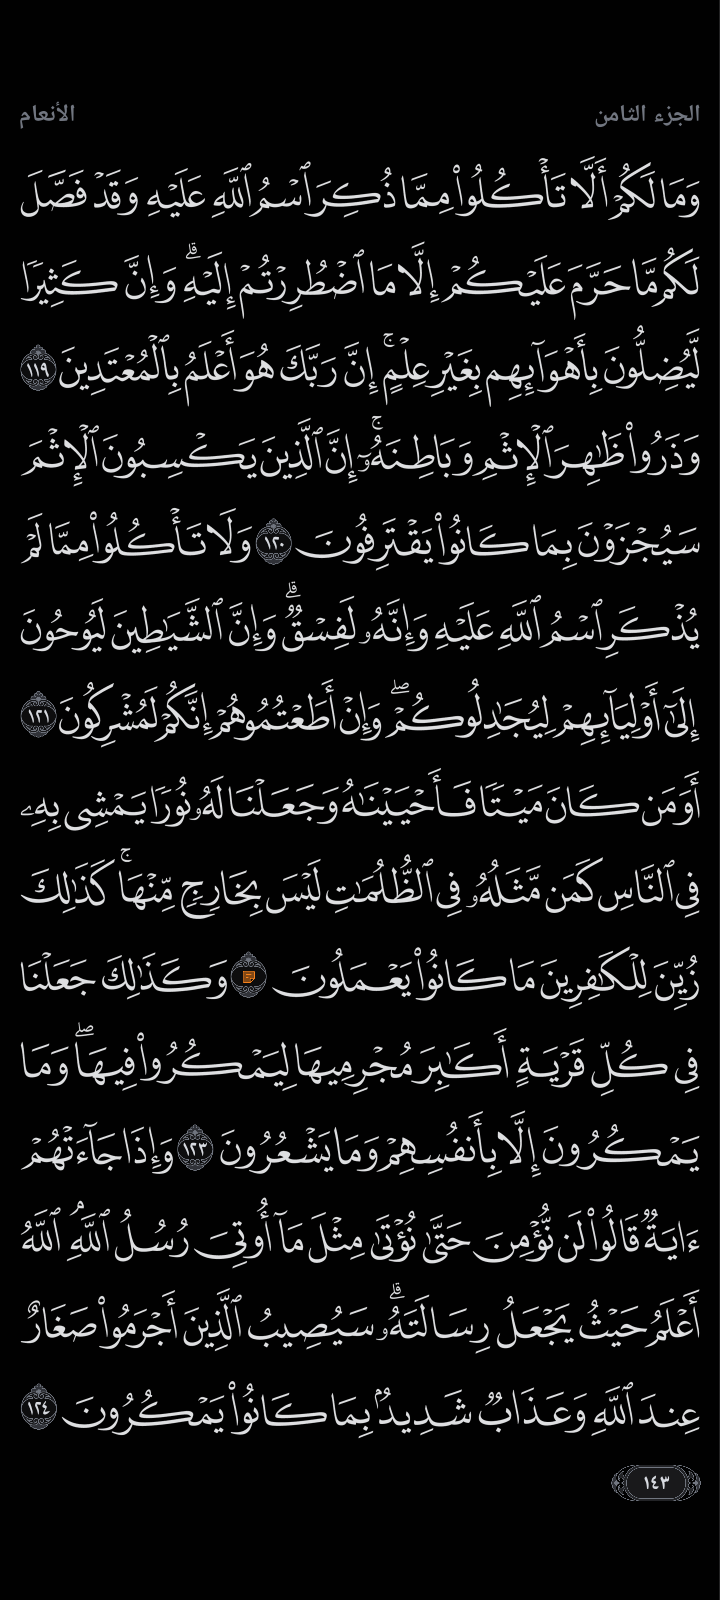 الجزء الثامن
الأنعام
وَمَا لَكُمْ أَلَّا تَأْكُلُوا۟ مِمَّا ذُكِرَ ٱسْمُ ٱللَّهِ عَلَيْهِ وَقَدْ فَصَّلَ
لَكُم مَّا حَرَّمَ عَلَيْكُمْ إِلَّا مَا ٱضْطُرِرْتُمْ إِلَيْهِ ۗ وَإِنَّ كَثِيرًا
لَّيُضِلُّونَ بِأَهْوَآئِهِم بِغَيْرِ عِلْمٍ ۚ إِنَّ رَبَّكَ هُوَ أَعْلَمُ بِٱلْمُعْتَدِينَ ١١٩
وَذَرُوا۟ ظَٰهِرَ ٱلْإِثْمِ وَبَاطِنَهُۥٓ ۚ إِنَّ ٱلَّذِينَ يَكْسِبُونَ ٱلْإِثْمَ
سَيُجْزَوْنَ بِمَا كَانُوا۟ يَقْتَرِفُونَ ١٢٠ وَلَا تَأْكُلُوا۟ مِمَّا لَمْ
يُذْكَرِ ٱسْمُ ٱللَّهِ عَلَيْهِ وَإِنَّهُۥ لَفِسْقٌ ۗ وَإِنَّ ٱلشَّيَٰطِينَ لَيُوحُونَ
إِلَىٰٓ أَوْلِيَآئِهِمْ لِيُجَٰدِلُوكُمْ ۖ وَإِنْ أَطَعْتُمُوهُمْ إِنَّكُمْ لَمُشْرِكُونَ ١٢١
أَوَمَن كَانَ مَيْتًا فَأَحْيَيْنَٰهُ وَجَعَلْنَا لَهُۥ نُورًا يَمْشِى بِهِۦ
فِى ٱلنَّاسِ كَمَن مَّثَلُهُۥ فِى ٱلظُّلُمَٰتِ لَيْسَ بِخَارِجٍ مِّنْهَا ۚ كَذَٰلِكَ
زُيِّنَ لِلْكَٰفِرِينَ مَا كَانُوا۟ يَعْمَلُونَ وَكَذَٰلِكَ جَعَلْنَا
فِى كُلِّ قَرْيَةٍ أَكَٰبِرَ مُجْرِمِيهَا لِيَمْكُرُوا۟ فِيهَا ۖ وَمَا
يَمْكُرُونَ إِلَّا بِأَنفُسِهِمْ وَمَا يَشْعُرُونَ ١٢٣ وَإِذَا جَآءَتْهُمْ
ءَايَةٌ قَالُوا۟ لَن نُّؤْمِنَ حَتَّىٰ نُؤْتَىٰ مِثْلَ مَآ أُوتِىَ رُسُلُ ٱللَّهِ ۘ ٱللَّهُ
أَعْلَمُ حَيْثُ يَجْعَلُ رِسَالَتَهُۥ ۗ سَيُصِيبُ ٱلَّذِينَ أَجْرَمُوا۟ صَغَارٌ
عِندَ ٱللَّهِ وَعَذَابٌ شَدِيدٌۢ بِمَا كَانُوا۟ يَمْكُرُونَ ١٢٤
١٤٣